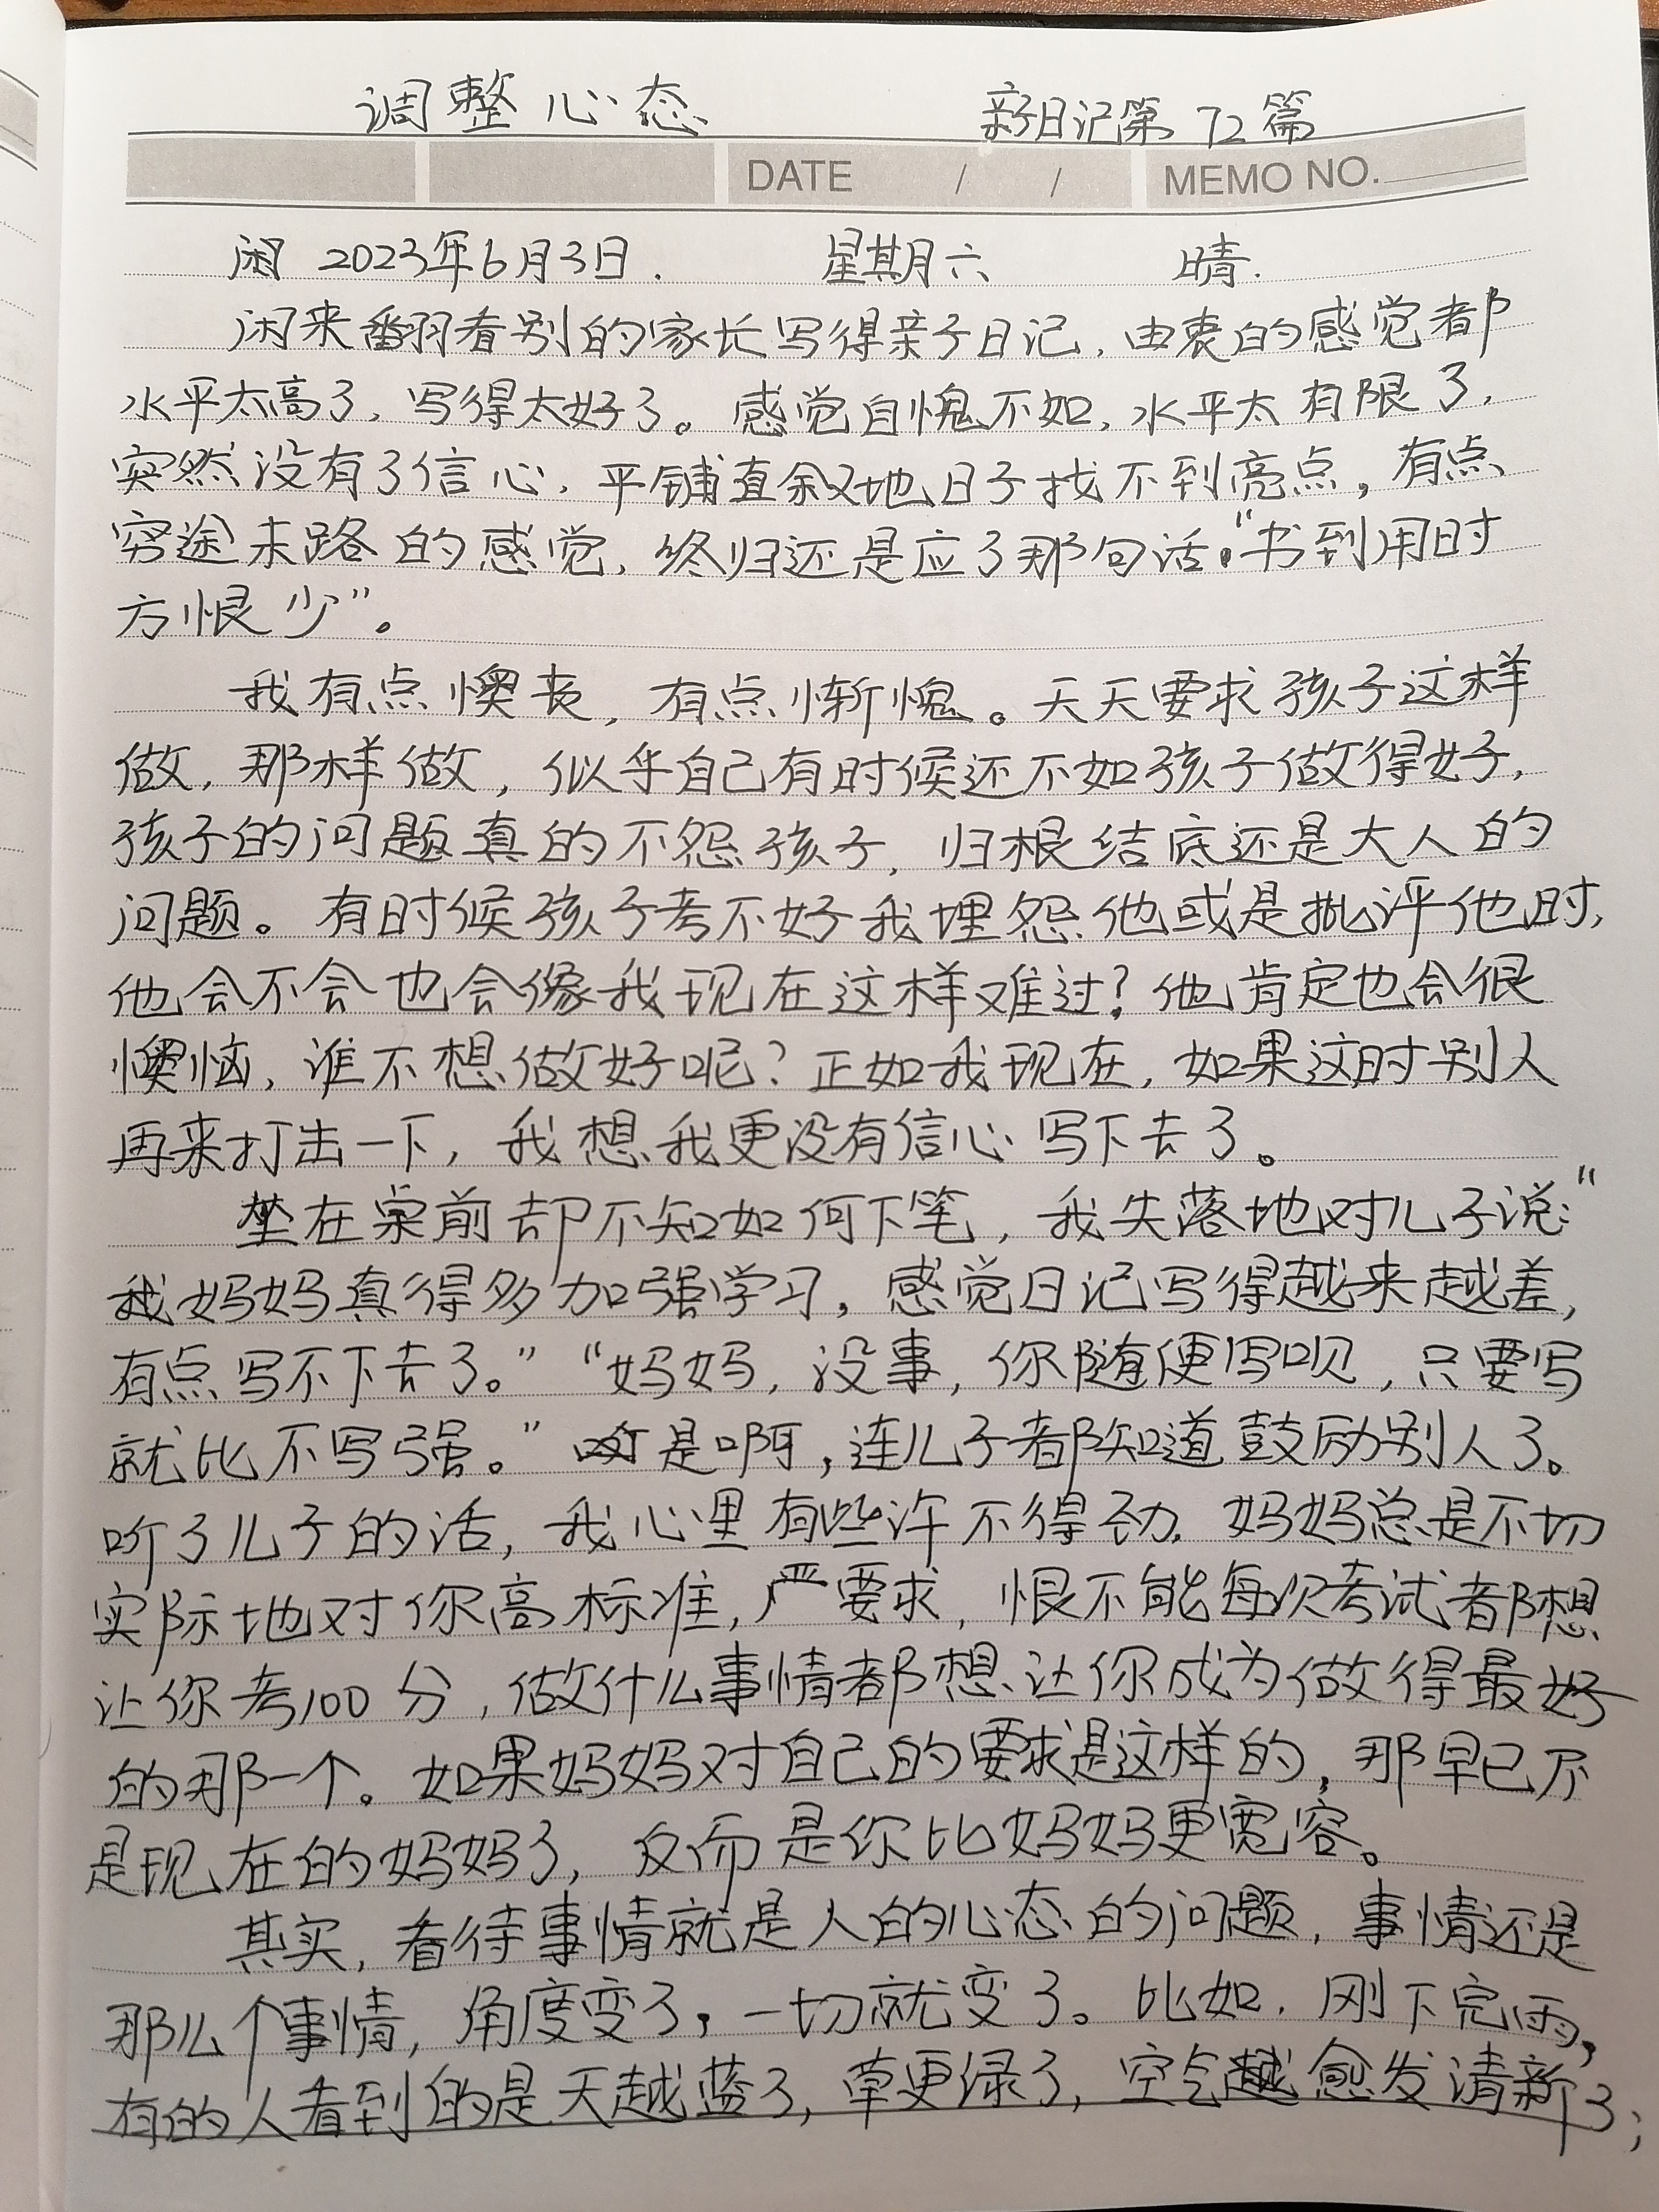 调整心态 新日记第72篇
DATE / / MEMO NO.
闲 2023年6月3日. 星期六 晴.
闲来翻看别的家长写得亲子日记,由衷的感觉都
水平太高了,写得太好了。感觉自愧不如,水平太有限了,
突然没有了信心,平铺直叙地日子找不到亮点,有点
穷途末路的感觉,终归还是应了那句话:“书到用时
方恨少”。
我有点懊丧,有点惭愧。天天要求孩子这样
做,那样做,似乎自己有时候还不如孩子做得好,
孩子的问题真的不怨孩子,归根结底还是大人的
问题。有时候孩子考不好我埋怨他或是批评他时,
他会不会也会像我现在这样难过?他肯定也会很
懊恼,谁不想做好呢?正如我现在,如果这时别人
再来打击一下,我想我更没有信心写下去了。
坐在桌前却不知如何下笔,我失落地对儿子说:“
我妈妈真得多加强学习,感觉日记写得越来越差,
有点写不下去了。”“妈妈,没事,你随便写呗,只要写
就比不写强。”是啊,连儿子都知道鼓励别人了。
听了儿子的话,我心里有些许不得劲,妈妈总是不切
实际地对你高标准,严要求,恨不能每次考试都想
让你考100分,做什么事情都想让你成为做得最好
的那一个。如果妈妈对自己的要求是这样的,那早已不
是现在的妈妈了,反而是你比妈妈更宽容。
其实,看待事情就是人的心态的问题,事情还是
那么个事情,角度变了,一切就变了。比如,刚下完雨,
有的人看到的是天越蓝了,草更绿了,空气越愈发清新了;